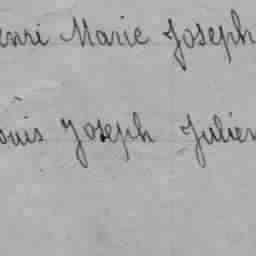 enri Marie Joseph
ouis Joseph Julien